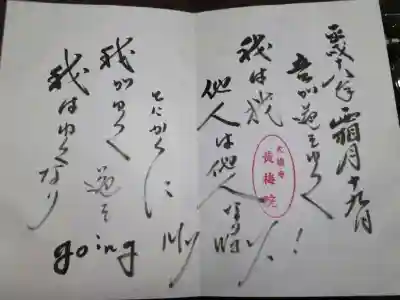 平成十八年霜月十九日
吾が道をゆく!
我は我
他人は他人なり
大徳寺
黄梅院
とにかくに
我がゆく道を
我はゆくなり
going